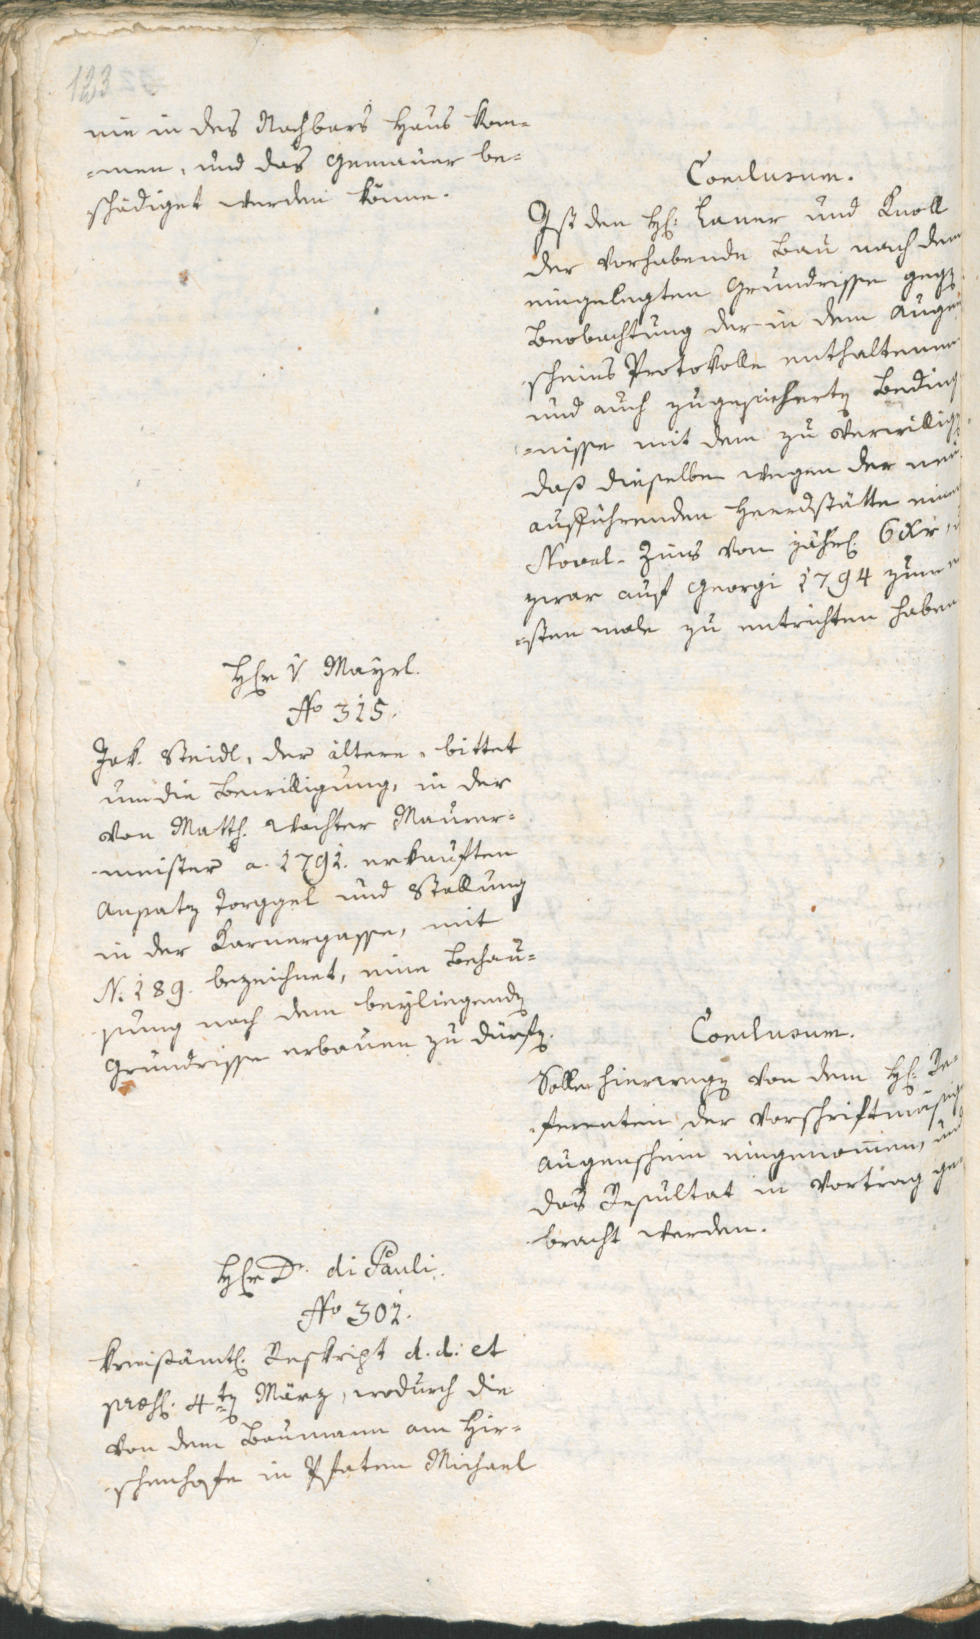 123
nie in des Nachbars Haus kom-
-men, und das Gemäuer be-
schädiget werden könne.
Conclusum.
Ist den H: Laner und Knoll
der vorhabende Bau nach dem
eingelegten Grundrisse gegen
Beobachtung der in dem Augen
scheins Protokolle enthaltenen
und auch zugesicherten Beding
-nisse mit dem zu verwilligen
daß dieselben wegen der neu
aufführenden Heerdstätte einen
Noval-Zins von jährl. 6 xr,
zwar auf Georgi 1794 zum er
-sten male zu entrichten haben
Herr v Mayrl.
No 315.
Jak. Steidl, der ältere, bittet
um die Bewilligung, in der
von Matth. Wachter Maurer-
-meister a. 1791. erkauften
Ansatz Torggel und Stallung
in der Karnergasse, mit
N. 189. bezeichnet, eine Behau-
sung nach dem beyliegenden
Grundrisse erbauen zu dürfen.
Conclusum.
Solle hierwegen von dem H: Re-
ferenten der vorschriftmäßige
Augenschein eingenommen, und
das Resultat in Vortrag ge-
bracht werden.
Herr Dr. di Pauli.
No 302.
Kreisämtl. Reskript d. d: et
praes. 4ten März, wodurch die
von dem Baumann am Hir-
schenhofe in Pfaten Michael